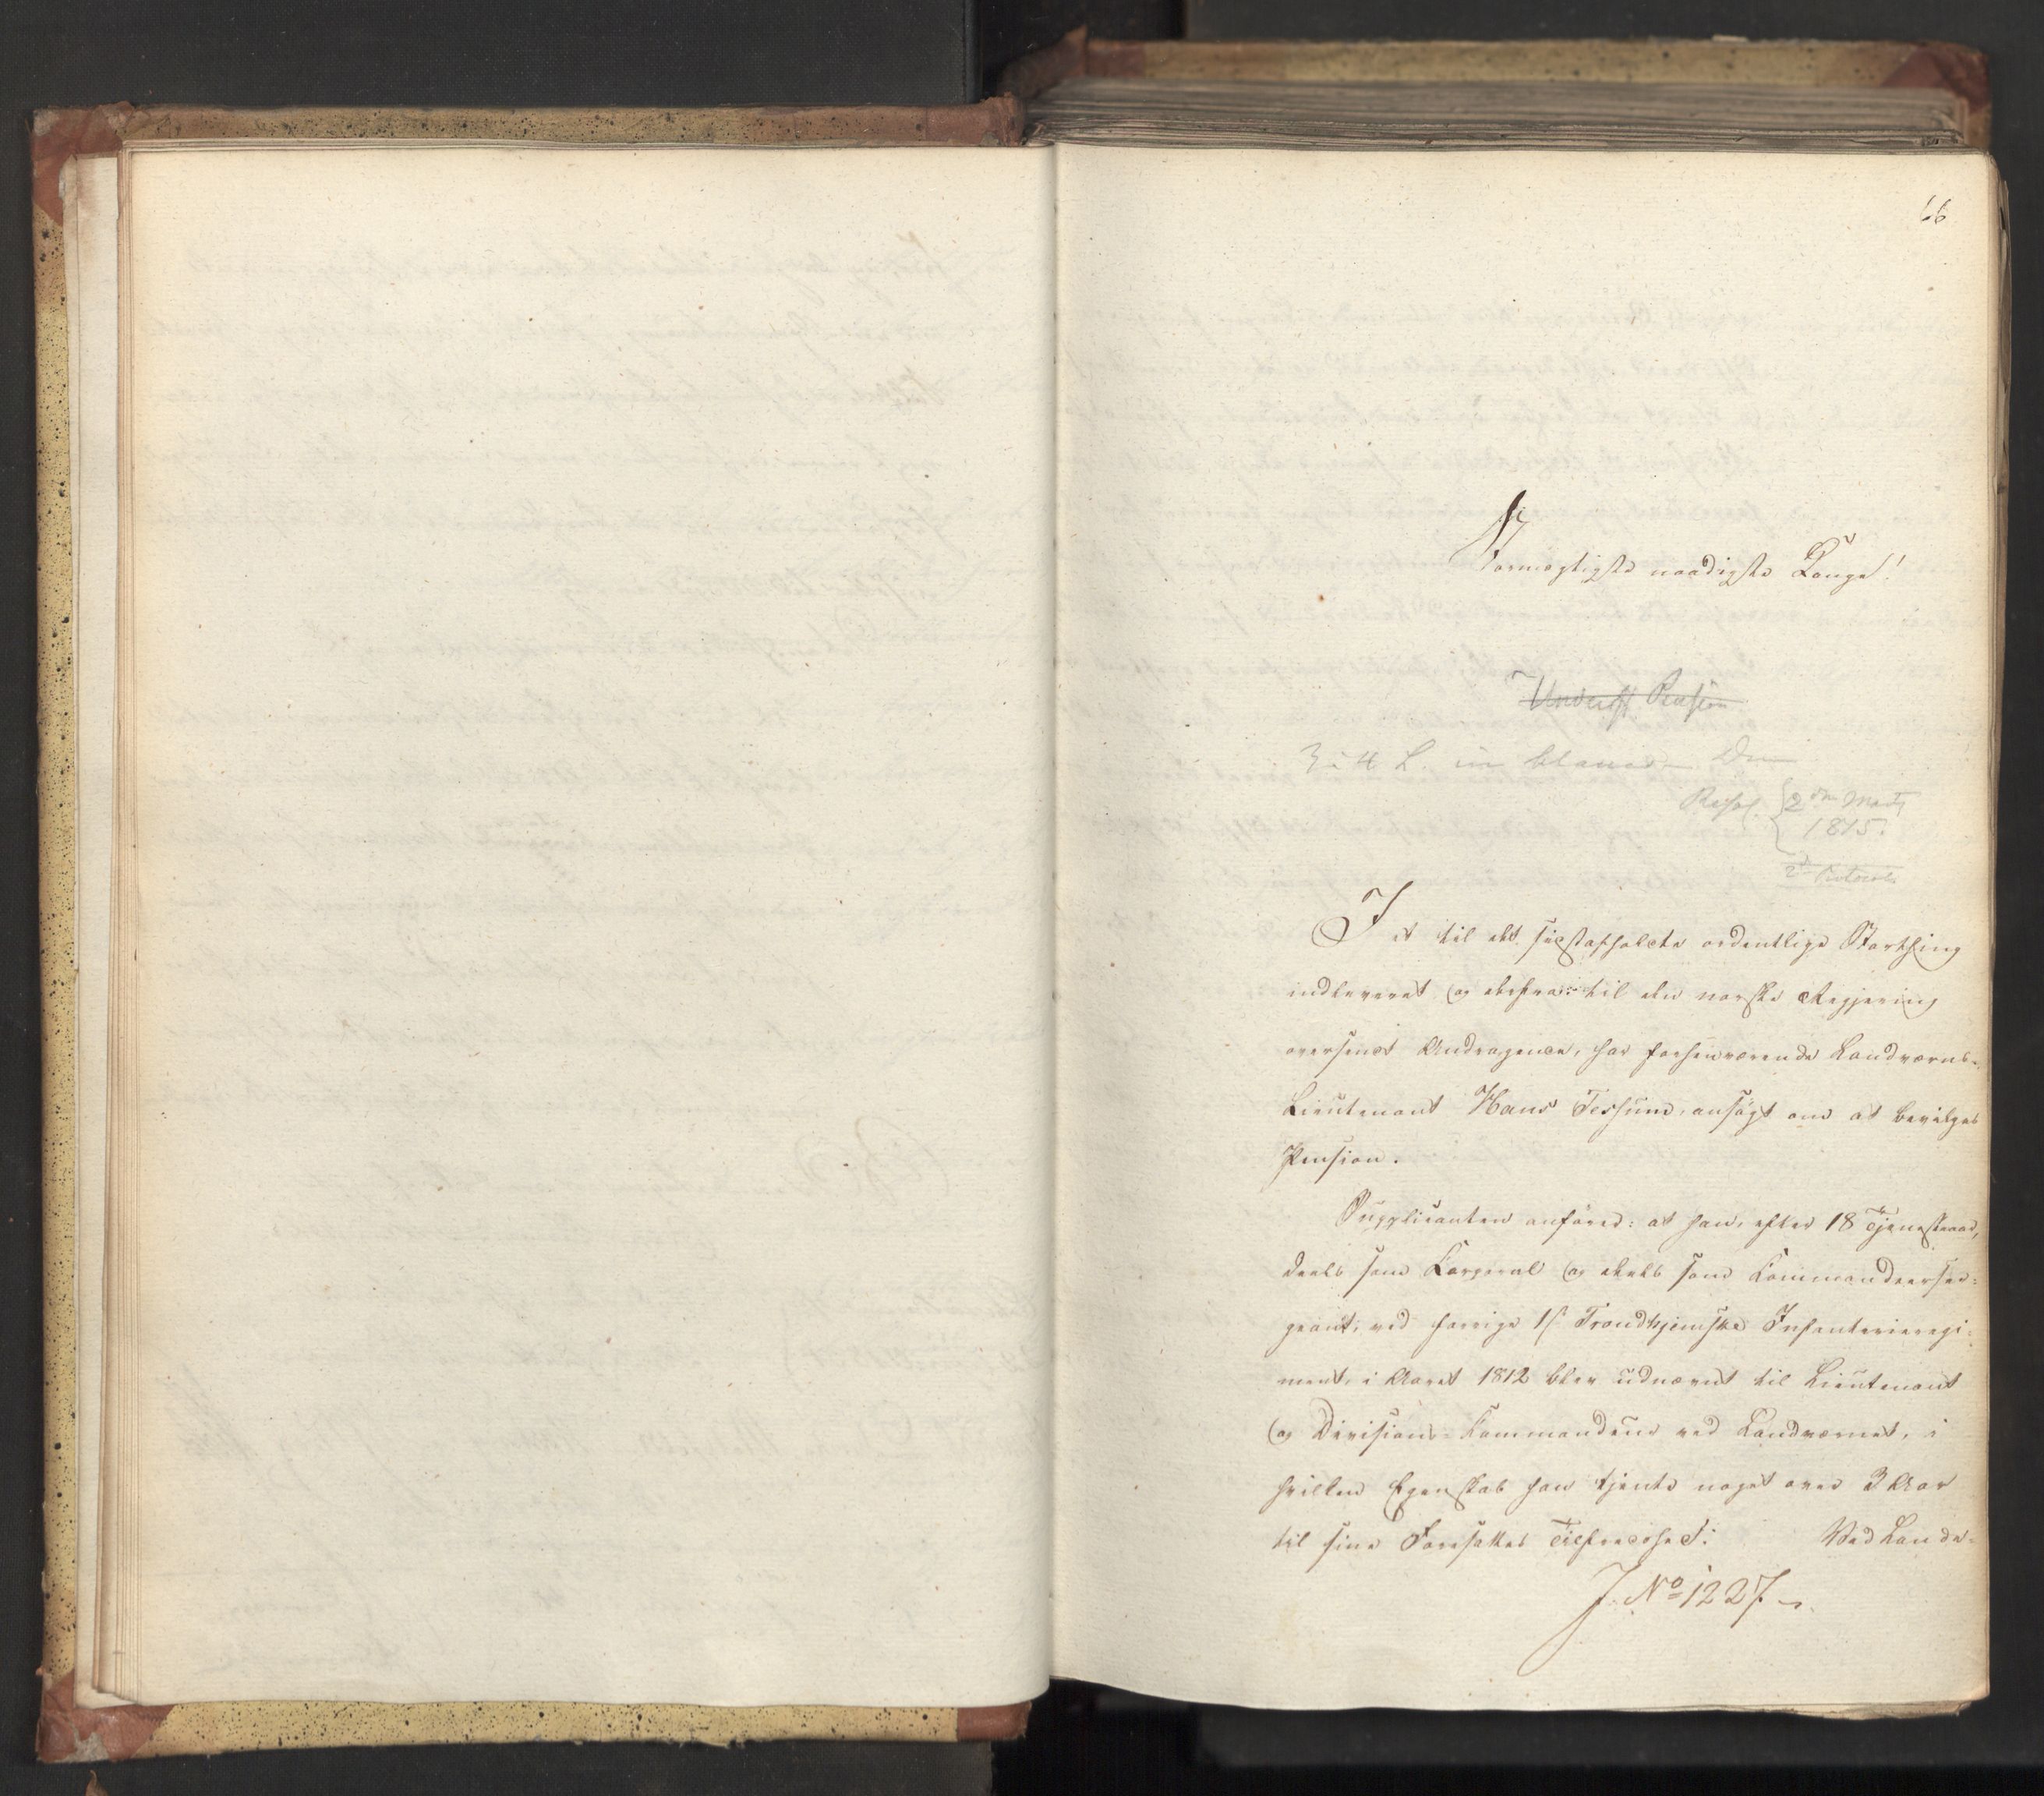 66
Stormægtigste naadigste Konge!
Underoff Pension
3 à 4 L. in blanco
Resol. 2den Marts
1815.
2d Protocol
I et til det sidstafholdte ordentlige Storthing
indleveret og derfra til den norske Regjering
oversendt Andragende, har forhenværende Landværns-
Lieutenant Hans Tessund, ansøgt om at bevilges
Pension.
Supplicanten anfører: at han, efter 18 Tjenesteaar,
deels som Korporal og deels som Kommandeerser-
geant, ved forrige 1ste Trondhjemske Infanterieregi-
ment, i Aaret 1812 blev udnævnt til Lieutenant
og Divisions-Kommandeur ved Landværnet, i
hvilken Egenskab han tjente noget over 3 Aar
til sine Foresattes Tilfredshed: Ved Lande-
J. No 1227